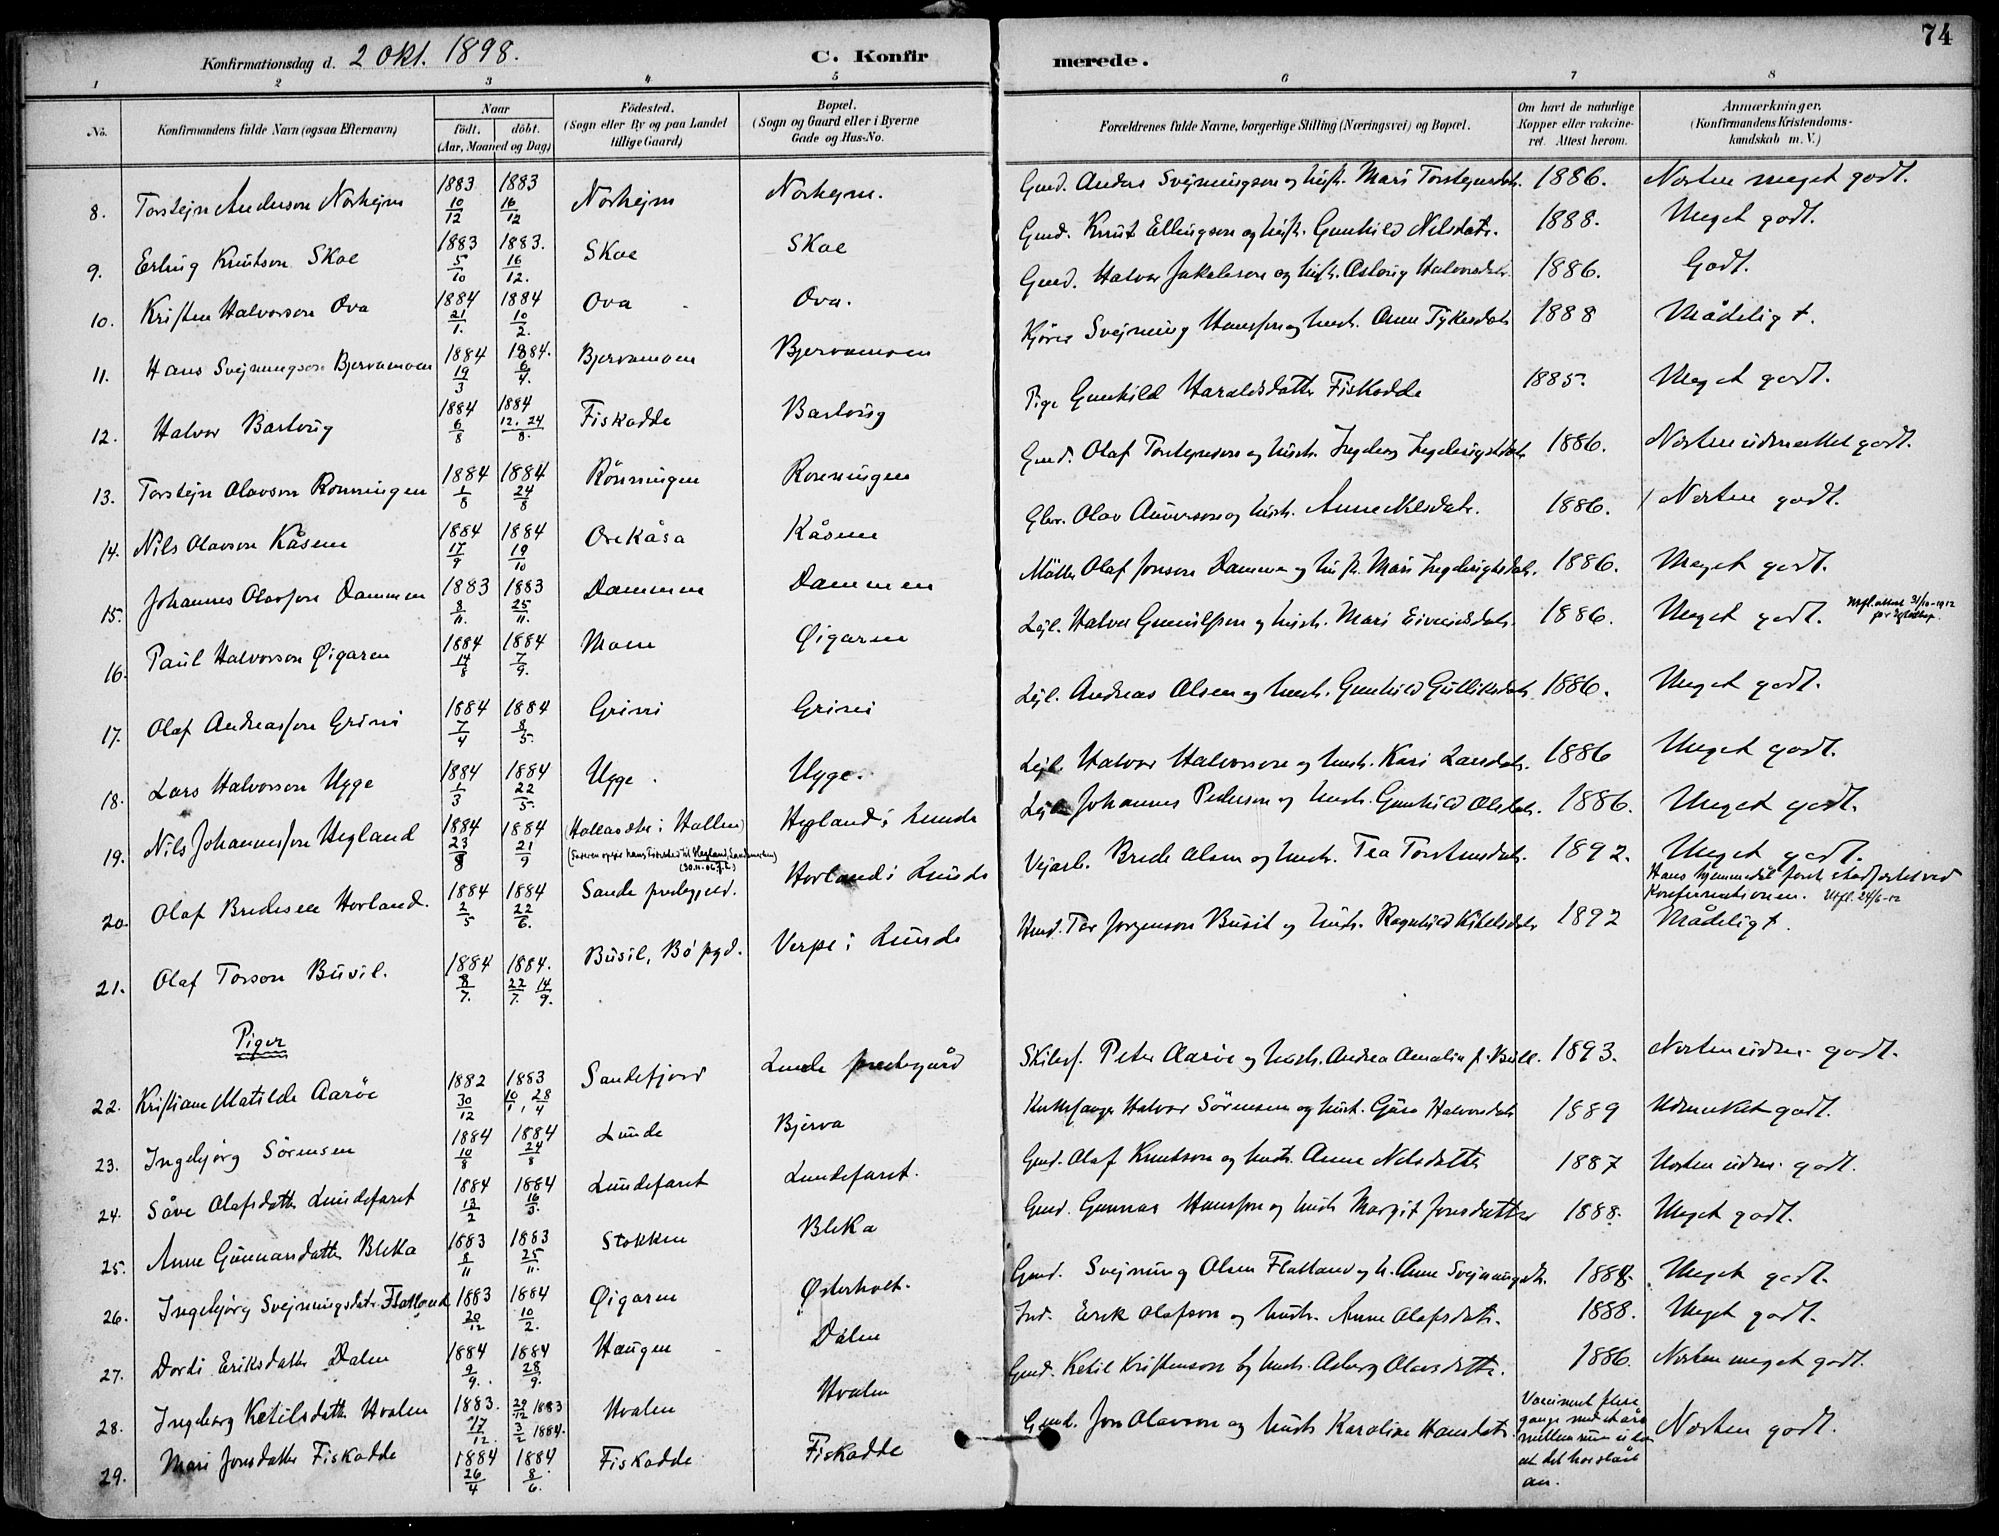 74
Konfirmationsdag d. 2 Okt. 1898. C. Konfir merede.
1 2 3 4 5 6 7 8
No. Konfirmandens fulde Navn (ogsaa Efternavn) Naar födt. döbt. (Aar, Maaned og Dag) Födested. (Sogn eller By og paa Landet tillige Gaard) Bopæl. (Sogn og Gaard eller i Byerne Gade og Hus-No. Forældrenes fulde Navne, borgerlige Stilling (Næringsvei) og Bopæl. Om havt de naturlige Kopper eller vakcineret. Attest herom. Anmærkninger. (Konfirmandens Kristendomskundskab m. V.)
8. Torstejn Anderson Norhejm 1883 10/12 1883 16/12 Norhejm Norhejm. Gmd. Anders Svejningson og hust. Mari Torstejnsdtr. 1886. Næsten meget godt.
9. Erling Knutson Skoe 1883 5/10 1883. 16/12. Skoe Skoe Gmd. Knut Ellingson og hust. Gunhild Nilsdatr. 1888. Meget godt.
10. Kristen Halvorson Ova 1884 21/1. 1884 10/2. Ova Ova. Gmd. Halvor Jakobson og hust. Aslaug Halvorsdtr. 1886. Godt.
11. Hans Svejnungson Bjervamoen 1884 19/3 1884. 6/4. Bjervamoen Bjervamoen Svejnung Hansson og hust. Anne 1888 Mådeligt.
12. Halvor Bastvüg 1884 6/8 1884 12. 24/8. Fiskodde Pige Gunhild Haraldsdatter Fiskodde 1885. Meget godt.
13. Torstejn Olavson Rönningen 1884 1/8 1884 24/8 Rönningen Rönningen Gmd. Olaf Torstejnson og hust. Ingeborg 1886. Næsten udmærket godt.
14. Nils Olavson Kåsene 1884 17/9 1884 19/10 Orekåsa Kåsene Olav og hust. Anne Nilsdatr. 1886. Næsten godt.
15. Johannes Olavson Dammen 1883 8/11. 1883 25/11. Dammen Dammen Möller Olaf Jonson Dammen og hust. Mari 1886. Meget godt.
16. Paul Halvorson Øigaren 1884 14/8 1884 7/9. Moen Øigaren Lejl. Halvor og hust. Mari 1886. Meget godt.
17. Olaf Andreasson Grini 1884 7/4 1884 8/5. Grini Grini Lejl. Andreas Olsen og hust. Gunhild Gulliksdatr. 1886. Meget godt.
18. Lars Halvorson Ugge 1884 1/3 1884 22/5. Ugge. Ugge. Lejl. Halvor Halvorson og hust. Kari Larsdatr. 1886 Meget godt.
19. Nils Johannesson Hegland 1884 23/8 1884 21/9 Hegland i Lunde Lejl. Johannes Pederson og hust. Gunhild Olsdatr. 1886. Meget godt.
20. Olaf Bredesen Horland. 1884 2/5 1884 22/6. Sande prestegjeld. Horland i Lunde Vejarb. Brede Olsen og hust. Tea Torstensdatr. 1892. Meget godt.
Konfirmationen.
21. Olaf Torson Busil. 1884 8/7. 1884. 22/7. 14/9. Busil, Bö pgd. Verpe i Lunde Hmd. Tor Jörgenson Busil og hust. Ragnhild Kittelsdatr 1892 Mådeligt.
Piger
22. Kristiane Matilde Aaröe 1882 30/12 1883 10/1, 28/4 Sandefjord Lunde prestegård Skibsf. Peter Aaröe og hust. Andrea Amalie f. Bull. 1893. Næsten udm. godt.
23. Ingebjörg Sörensen 1884 10/8 1884 24/8 Lunde Bjerva Halvor Sörensen og hust. Halvorsdatr 1889 Udmærket godt.
24. Såve Olafsdatter Lundefaret 1884 13/2 1884 16/3. Lundefaret Lundefaret. Gmd. Olaf Knutson og hust. Anne Nilsdatter 1887 Næsten udm. godt.
25. Anne Gunnarsdatter Bleka 1883 8/11 1883 25/11. Stokken Bleka Gmd. Gunnar Hansson og hust. Margit Jonsdatter 1888. Meget godt.
26. Ingebjörg Svejnungsdatr. Flatland 1883 20/12 1884 10/2. Øigaren Østerholt. Gmd. Svejnung Olsen Flatland og h. Anne Svejnungsdtr. 1888. Meget godt.
27. Dordi Eriksdatter Dalen 1884 2/9. 1884 28/9. Haugen Dalen Ind. Erik Olafson og hust. Anne Olafsdatr. 1888. Meget godt.
28. Ingeborg Ketilsdatter Hvalen 1883. 17/12. 29/12 1883 3/2 1884. Hvalen Hvalen Gmd. Ketil Kristenson og hust. Asberg Olavsdatter. 1886. Næsten meget godt.
29. Mari Jonsdatter Fiskodde 1884 26/4 1884 8/6. Fiskodde Fiskodde Gmd. Jon Olavson og hust. Karoline Hansdatr. Næsten godt.